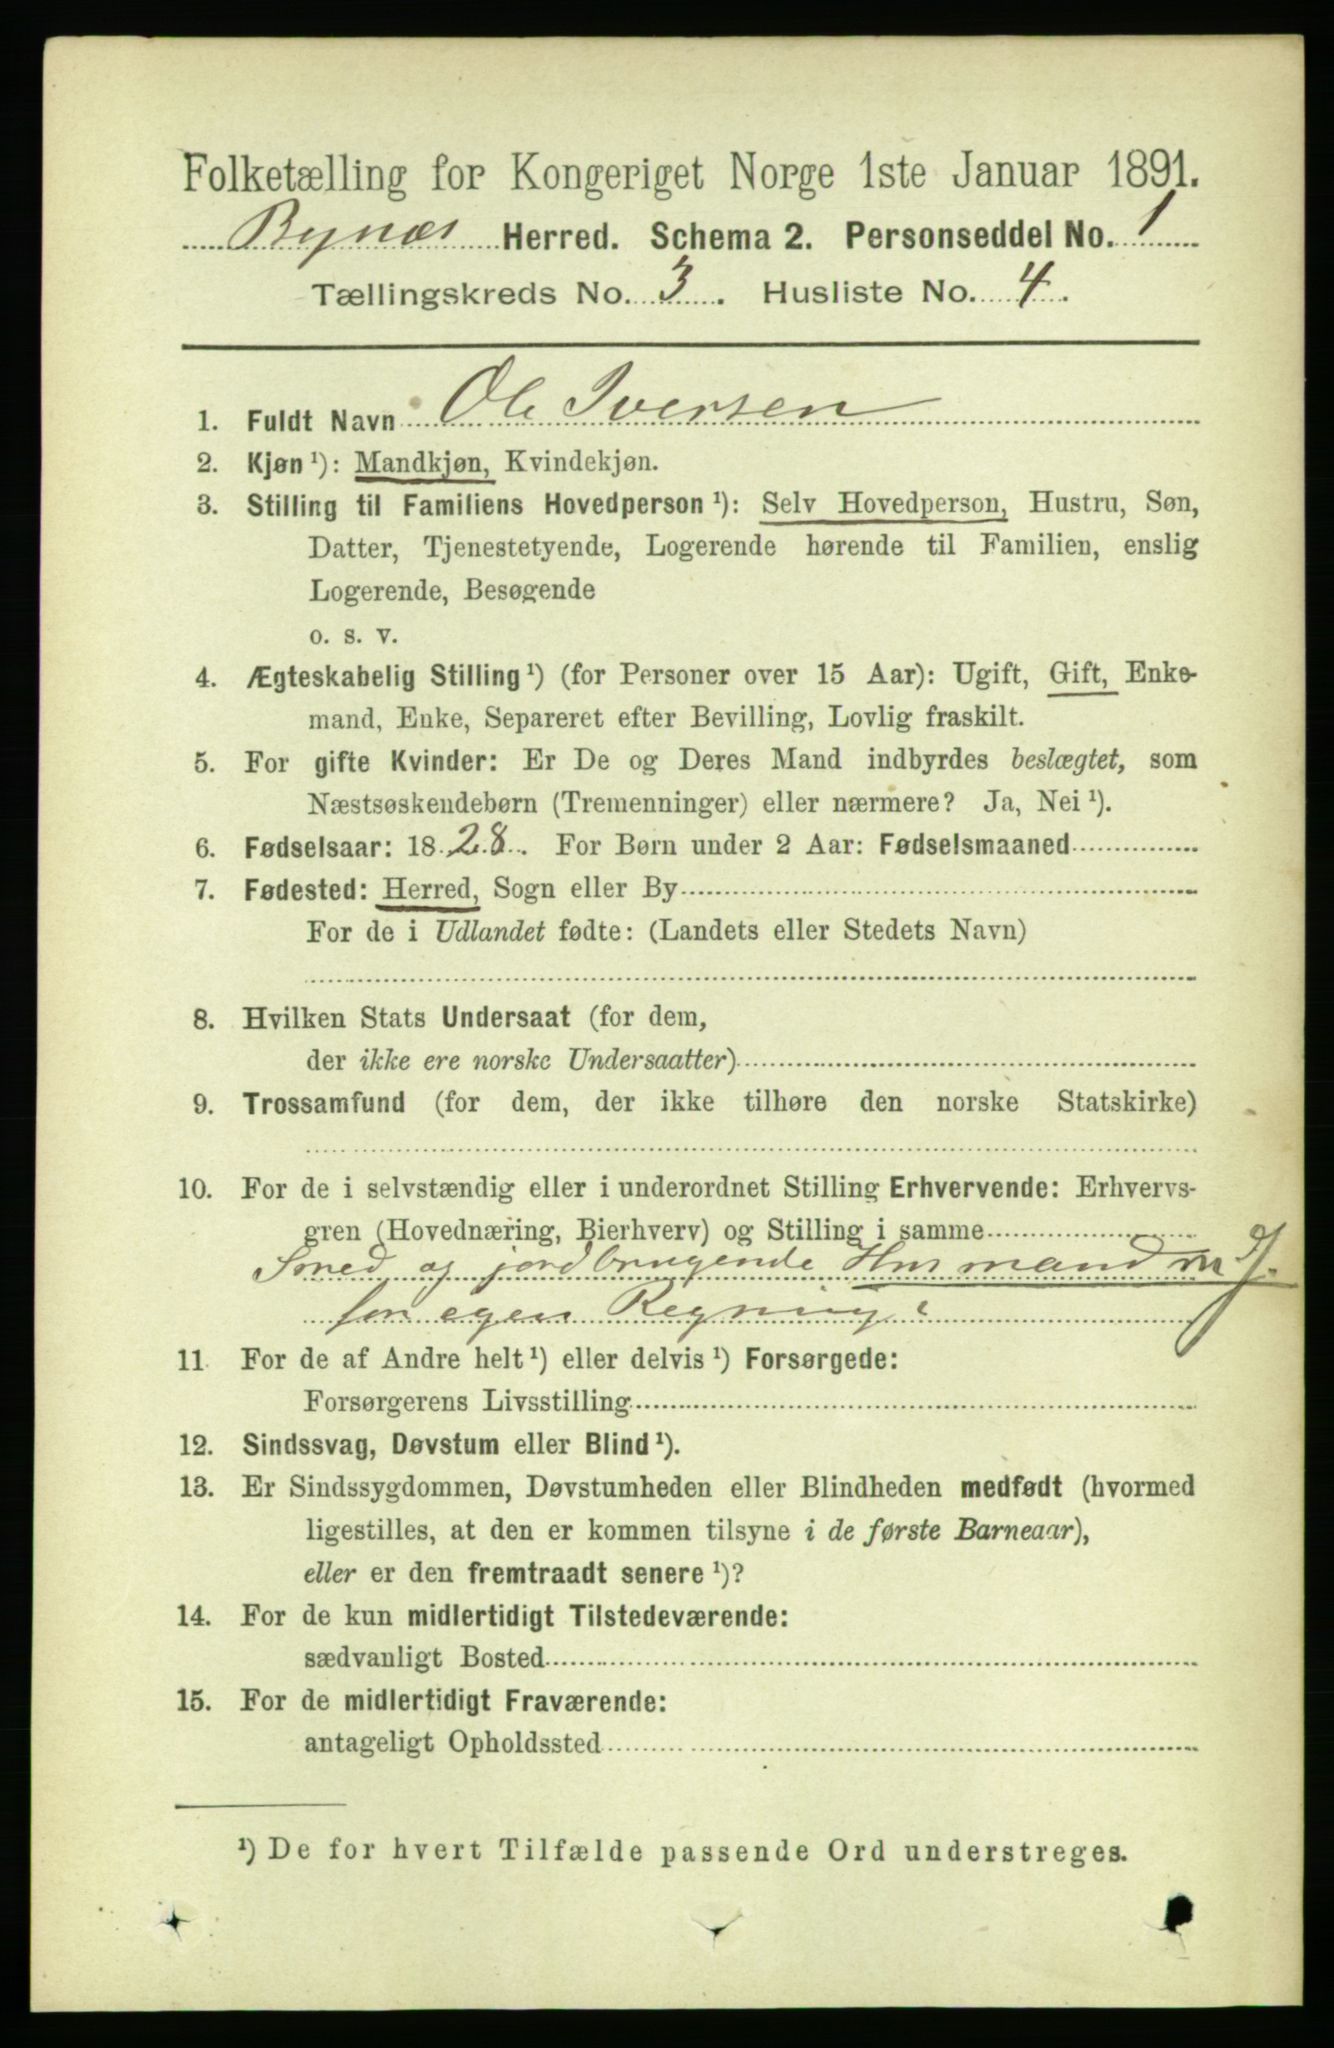 Folketælling for Kongeriget Norge 1ste Januar 1891.
Bynæs Herred. Schema 2. Personseddel No. 1
Tællingskreds No. 3. Husliste No. 4.
1. Fuldt Navn Ole Iversen
2. Kjøn¹): Mandkjøn, Kvindekjøn.
3. Stilling til Familiens Hovedperson¹): Selv Hovedperson, Hustru, Søn,
Datter, Tjenestetyende, Logerende hørende til Familien, enslig
Logerende, Besøgende
o. s. v.
4. Ægteskabelig Stilling¹) (for Personer over 15 Aar): Ugift, Gift, Enke-
mand, Enke, Separeret efter Bevilling, Lovlig fraskilt.
5. For gifte Kvinder: Er De og Deres Mand indbyrdes beslægtet, som
Næstsøskendebørn (Tremenninger) eller nærmere? Ja, Nei¹).
6. Fødselsaar: 1828. For Børn under 2 Aar: Fødselsmaaned
7. Fødested: Herred, Sogn eller By
For de i Udlandet fødte: (Landets eller Stedets Navn)
8. Hvilken Stats Undersaat (for dem,
der ikke ere norske Undersaatter)
9. Trossamfund (for dem, der ikke tilhøre den norske Statskirke)
10. For de i selvstændig eller i underordnet Stilling Erhvervende: Erhvervs-
gren (Hovednæring, Bierhverv) og Stilling i samme
Smed og jordbrugende Husmand m J.
for egen Regning
11 For de af Andre helt¹) eller delvis¹) Forsørgede:
Forsørgerens Livsstilling
12. Sindssvag, Døvstum eller Blind¹).
13. Er Sindssygdommen, Døvstumheden eller Blindheden medfødt (hvormed
ligestilles, at den er kommen tilsyne i de første Barneaar),
eller er den fremtraadt senere¹)?
14. For de kun midlertidigt Tilstedeværende:
sædvanligt Bosted
15. For de midlertidigt Fraværende:
antageligt Opholdssted
¹) De for hvert Tilfælde passende Ord understreges.